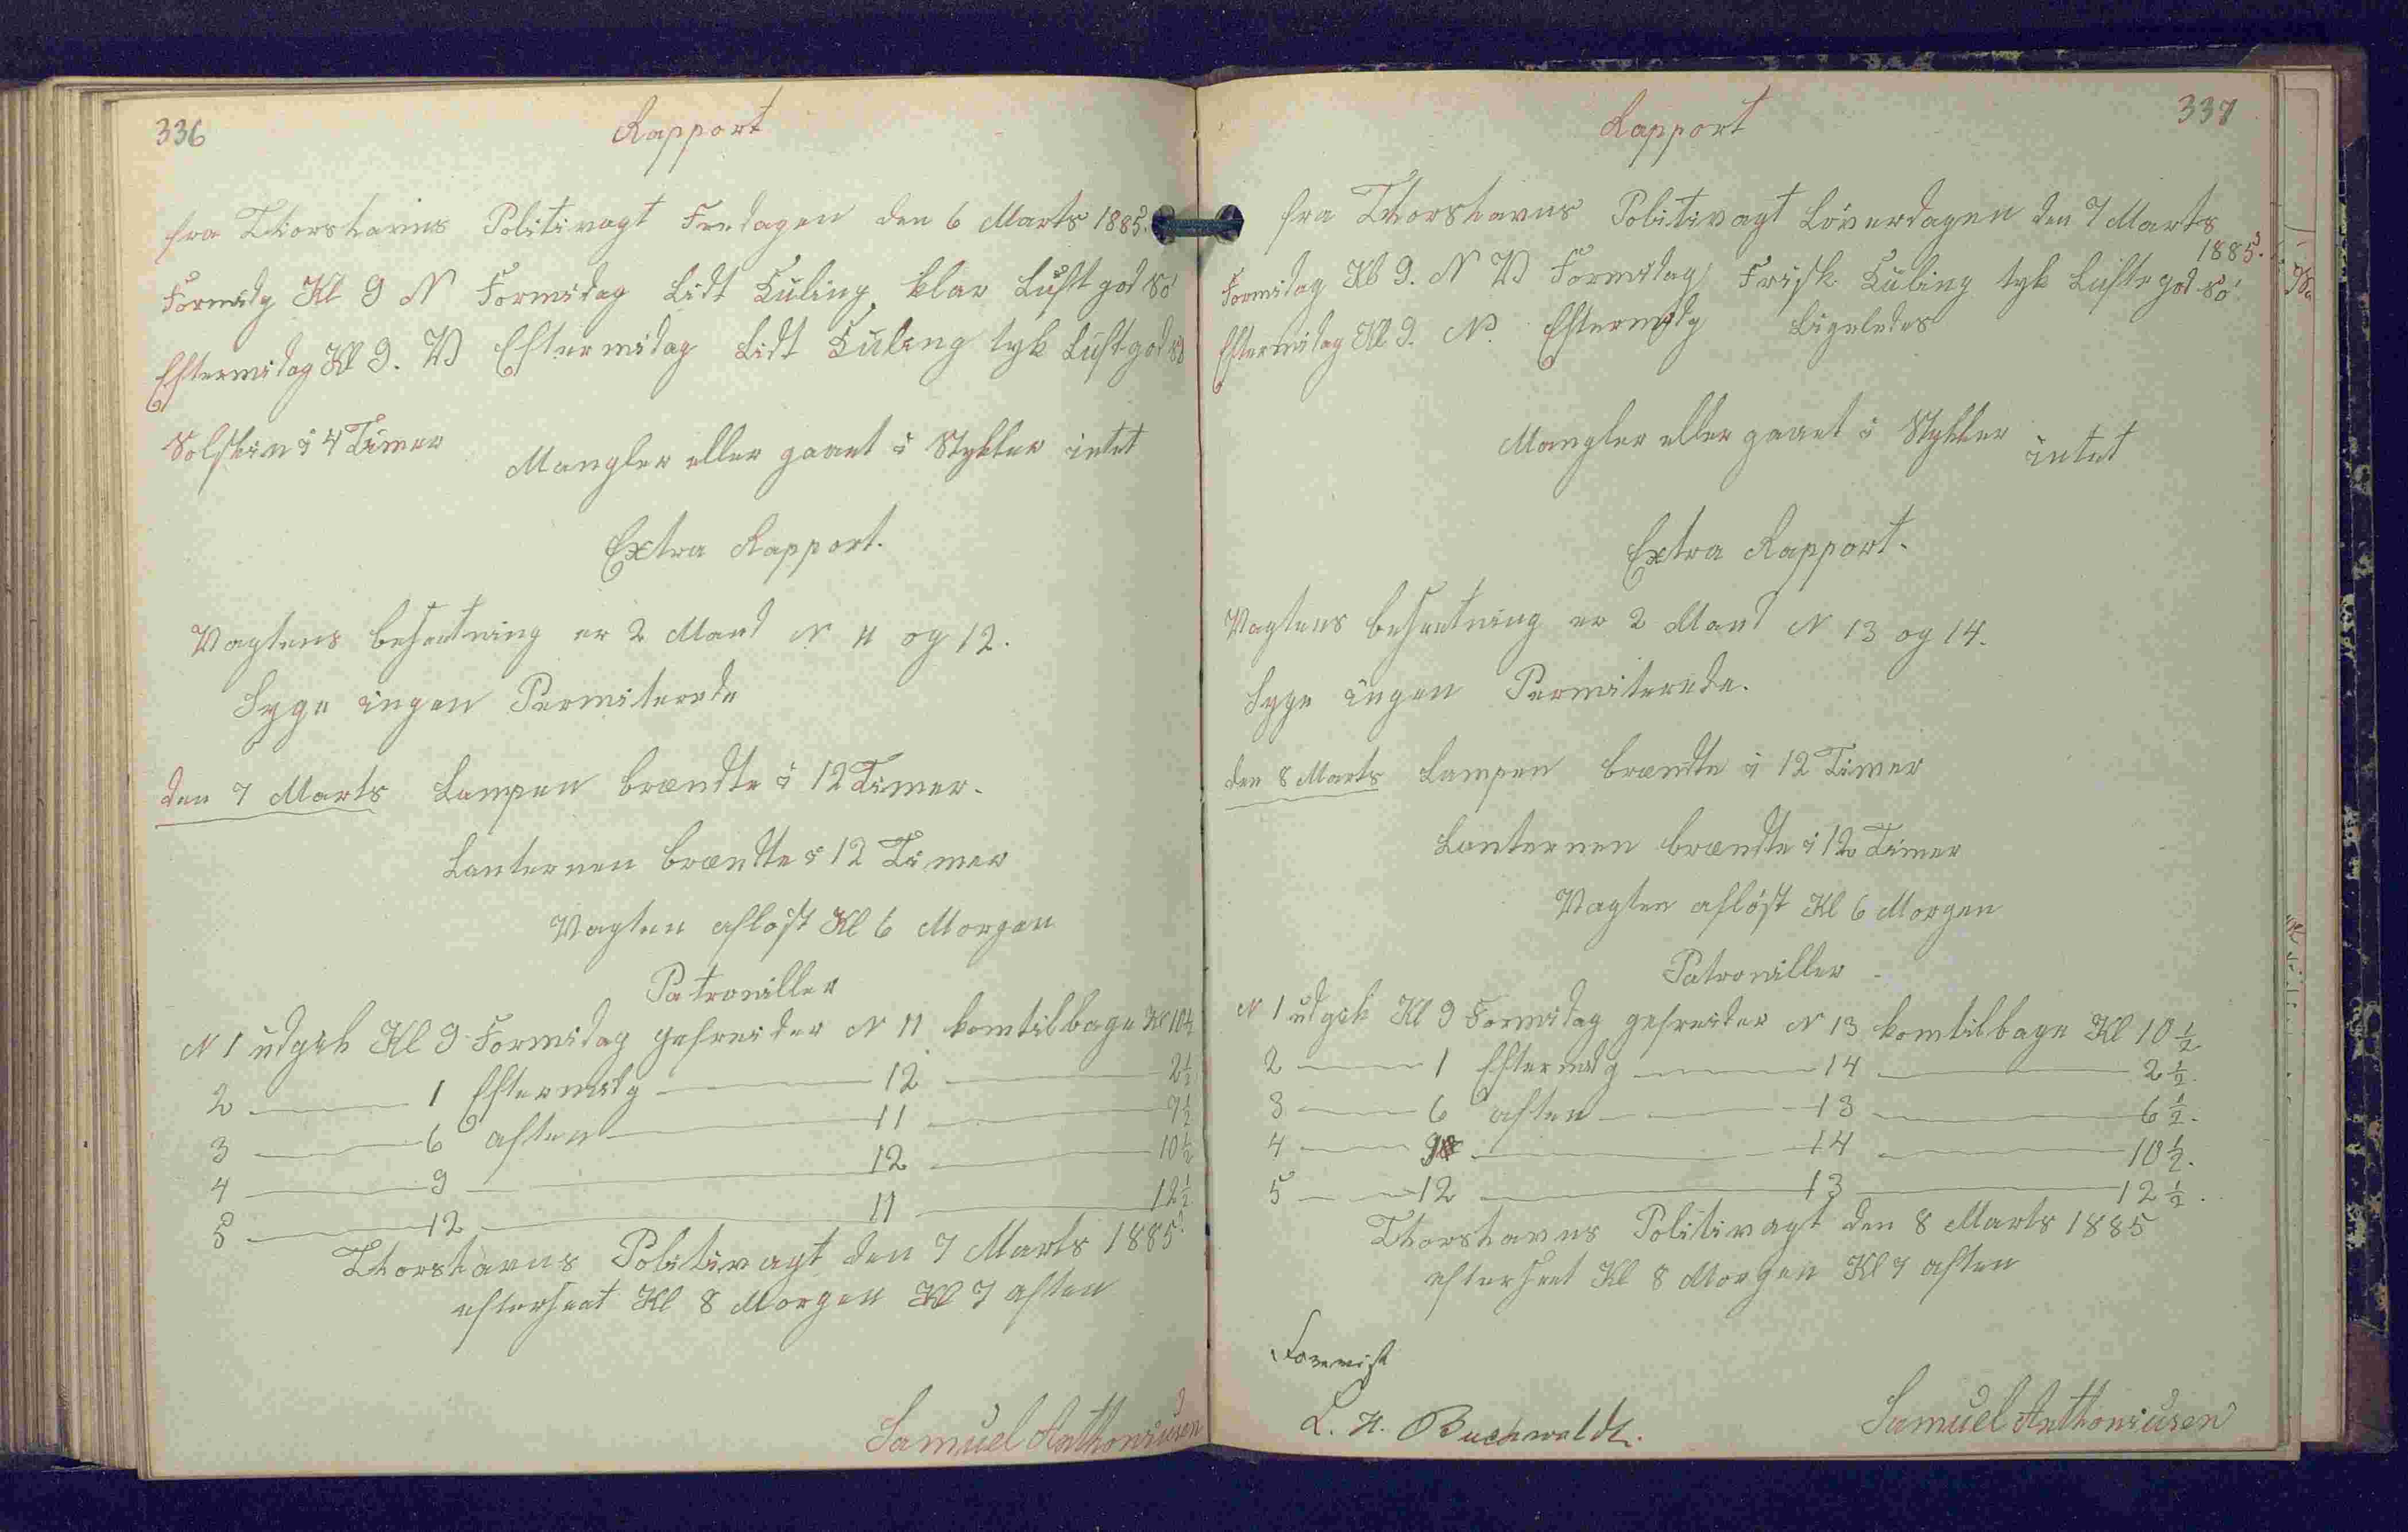 336
Rapport
fra Thorshavns Politivagt Fredagen den 6 Marts 1885.
Formidg Kl 9 N Formidag Lidt Kuling klar Luft god Sö
Eftermidag Kl 9. V Eftermidag Lidt Kuling tyk Luft god Sö
Solskin i 4 Timer Mangler eller gaaet i Stykker intet
Extra Rapport.
Vagtens besætning er 2 Mand N 11 og 12.
Syge ingen Permiterede
den 7 Marts Lampen brændte i 12 Timer.
Lanternen brændte i 12 Timer
Vagten aflöst Kl 6 Morgen
Patroniller
N 1 udgik Kl 9 Formidag gefreider N 11 kom tilbage Kl 10½
2 1 Eftermidg 12 2½
3 6 aften 11 7½
4 9 12 10½
5 12 11 12½
Thorshavns Politivagt den 7 Marts 1885
efterseet Kl 8 Morgen Kl 7 aften
Samuel Anthoniusen
337
Rapport
fra Thorshavns Politivagt Löverdagen den 7 Marts
1885.
Formidag Kl 9. N V Formidag Frisk Kuling tyk Luft god Sö
Eftermidag Kl 9. N. Eftermidg Ligeledes
Mangler eller gaaet i Stykker intet
Extra Rapport.
Vagtens besætning er 2 Mand N 13 og 14.
Syge ingen Permiterede.
den 8 Marts Lampen brændte i 12 Timer
Lanternen brændte i 12 Timer
Vagten aflöst Kl 6 Morgen
Patroniller
N 1 udgik Kl 9 Formidag gefreider N 13 kom tilbage Kl 10½
2 1 Eftermidg 14 2½.
3 6 aften 13 6½.
4 9 14 10½.
5 12 13 12½.
Thorshavns Politivagt den 8 Marts 1885
efterseet Kl 8 Morgen Kl 7 aften
Foreviist
L. H. Buchwaldt.
Samuel Anthoniusen